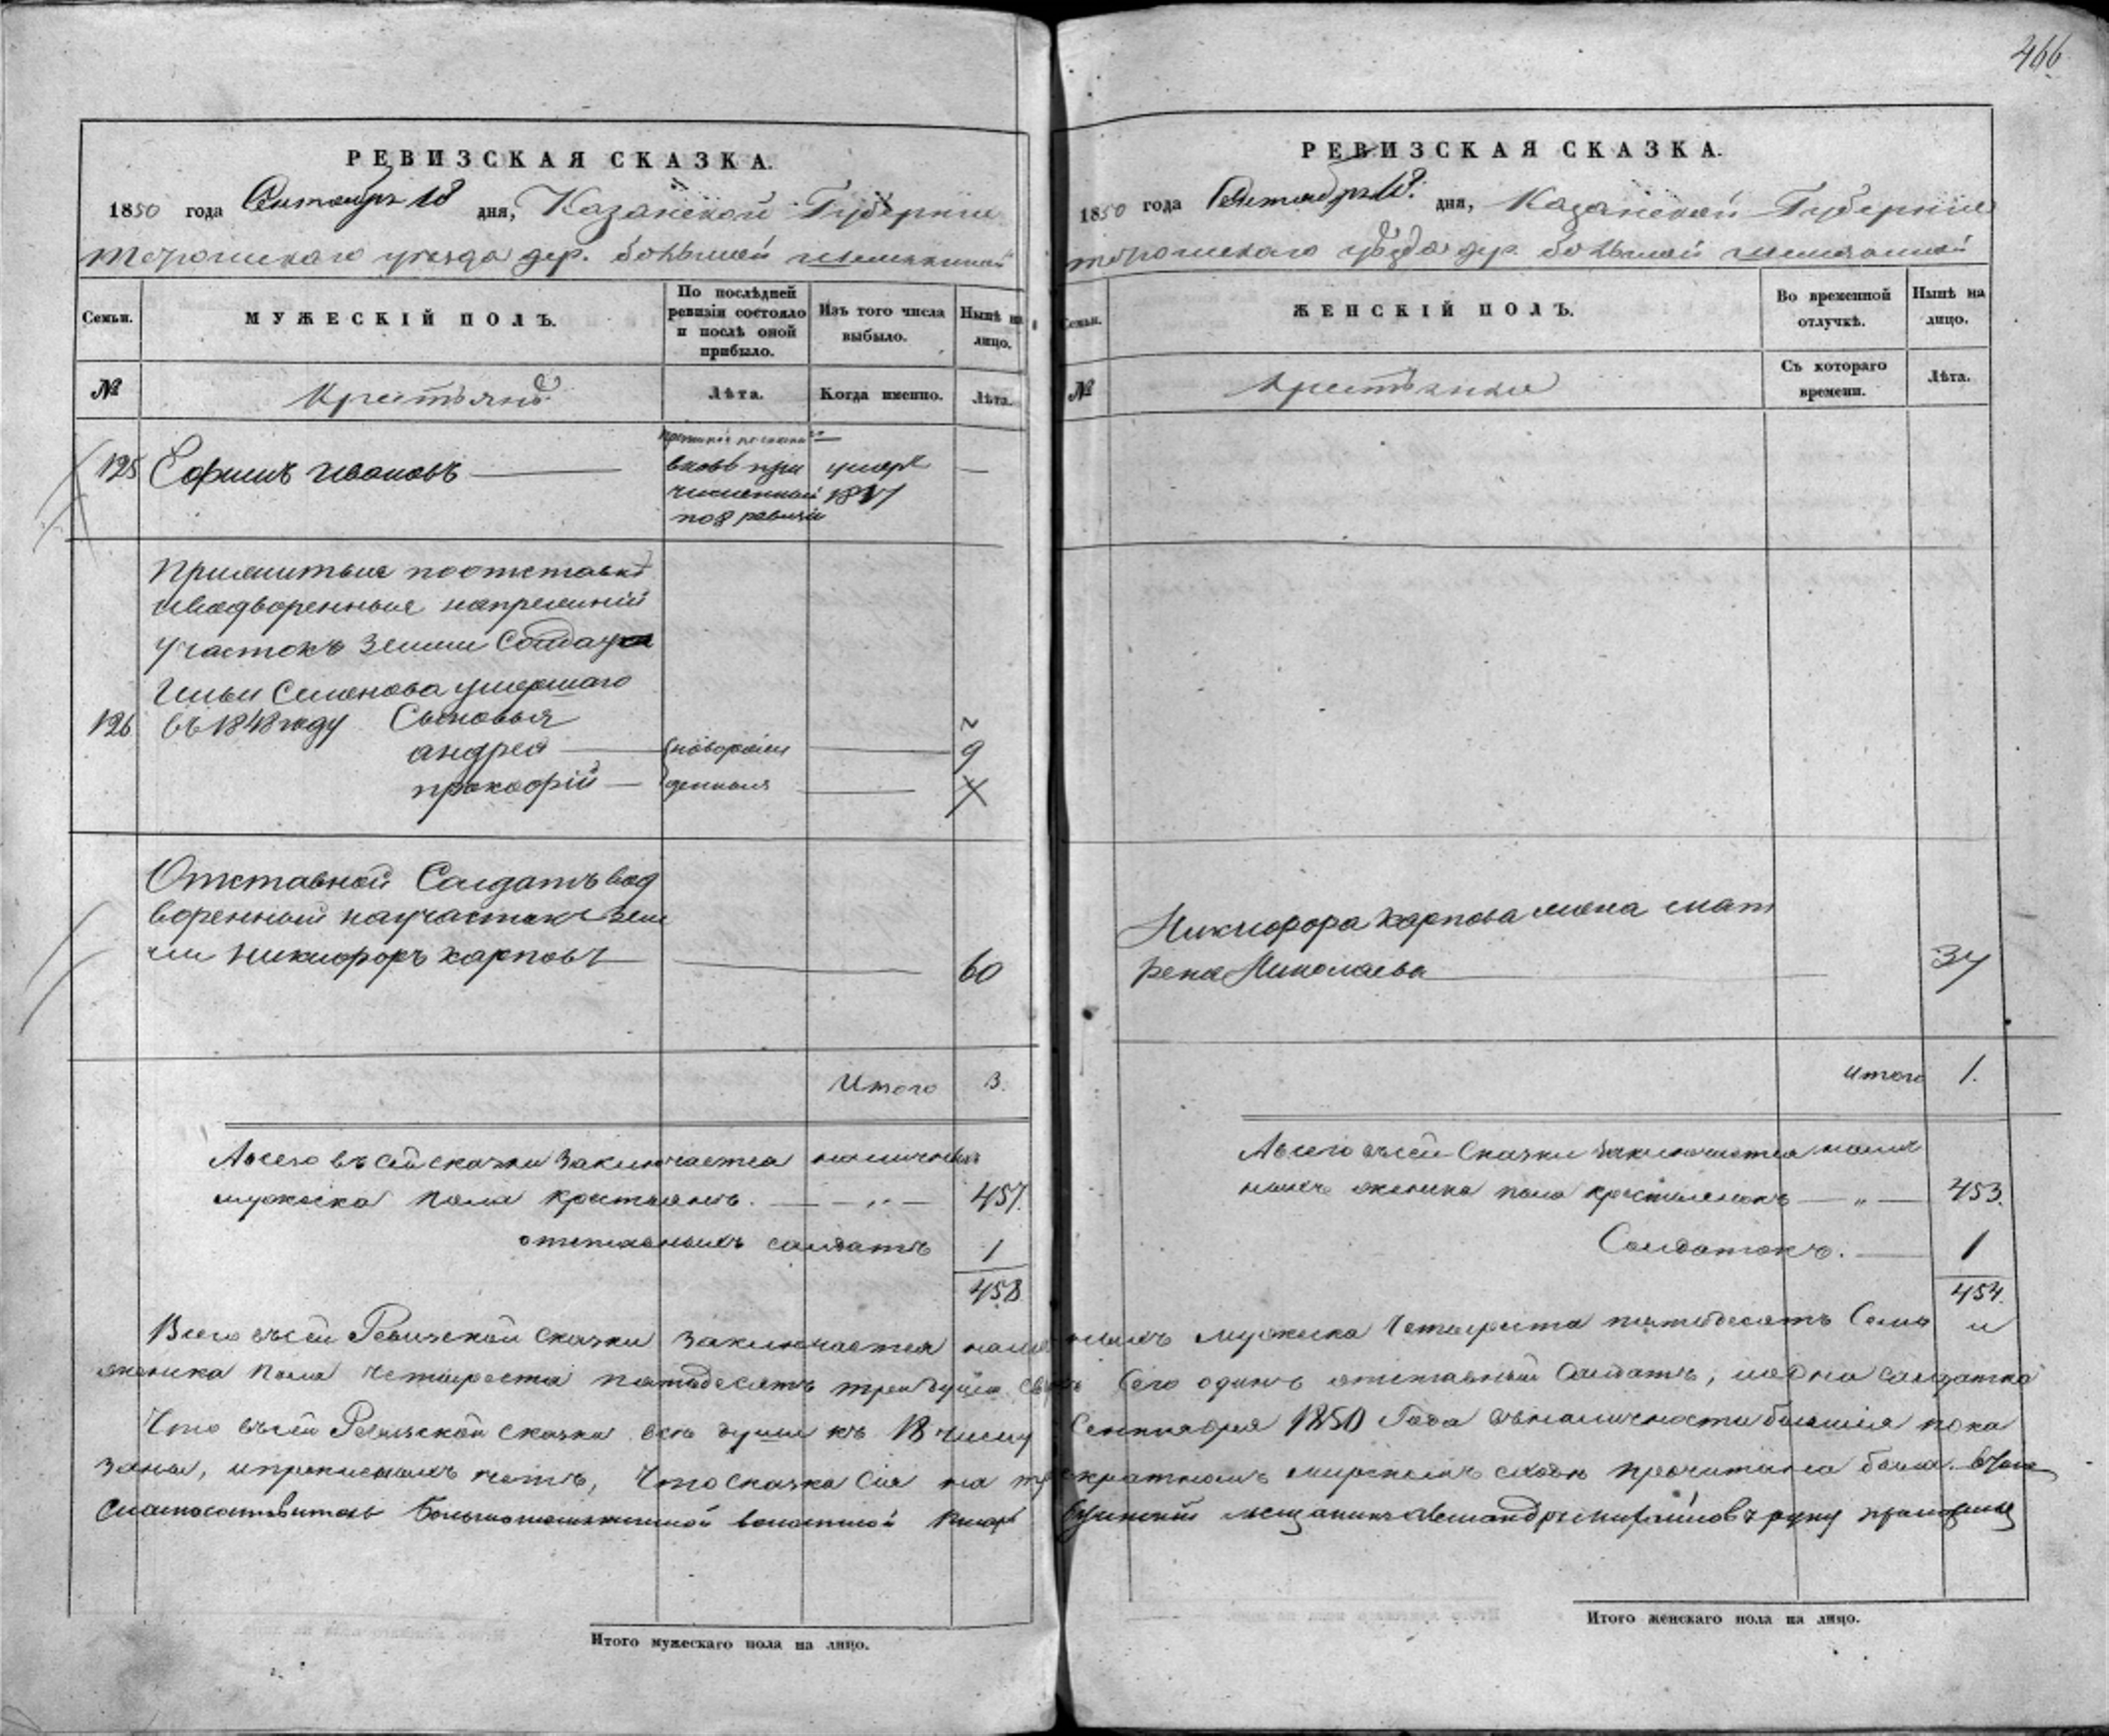 466
РЕВИЗСКАЯ СКАЗКА.
1850 года Сентября 18 дня, Казанской Губернии
уезда дер. большой
Семьи.
МУЖЕСКІЙ ПОЛЪ.
По послѣдней ревизіи состояло и послѣ оной прибыло.
Изъ того числа выбыло.
Нынѣ на лицо.
№
Крестьянъ
Лѣта.
Когда именно.
Лѣта.
125 Ефимъ Ивановъ вновь при умеръ —
численный 18
по 8 ревизіи
участокъ земли Солдата
Ильи Семенова умершаго
126 въ 1848 году Сыновья 2
андрей новорож 9
прокофій денныя
Отставной Солдатъ вод
воренный научасткѣ зем
ли Никифоръ Карповъ 60
Итого 3.
А всего въ сей сказки заключается наличныхъ
мужеска пола крестьянъ. — „ — 457.
отставныхъ солдатъ 1
458
РЕВИЗСКАЯ СКАЗКА.
1850 года Сентября 18. дня, Казанской Губернии
уѣзда дер. большой
Семьи.
ЖЕНСКІЙ ПОЛЪ.
Во временной отлучкѣ.
Нынѣ на лицо.
№
Крестьянки
Съ котораго времени.
Лѣта.
Никифора Карпова жена мат
рена Николаева 37
итого 1.
А всего въсей Сказки заключается налич
ныхъ женска пола крестьянокъ — „ — 453.
Солдатокъ. — 1
454.
Всего въсей Ревизской Сказки заключается наличныхъ мужеска Четыреста пятьдесятъ Семь и
женска пола четыреста пятьдесятъ три души сверхъ Сего одинъ отставный Солдатъ, и одна солдатка
Что въсей Ревизской сказки всѣ души къ 18 числу Сентября 1850 Года въналичности бывшія пока
заны, ипрописныхъ нетъ, Что сказка Сія на мирскомъ сходѣ прочитана была. вЧемъ
волостной мещанинъ руку приложилъ
Итого мужескаго пола на лицо.
Итого женскаго пола на лицо.